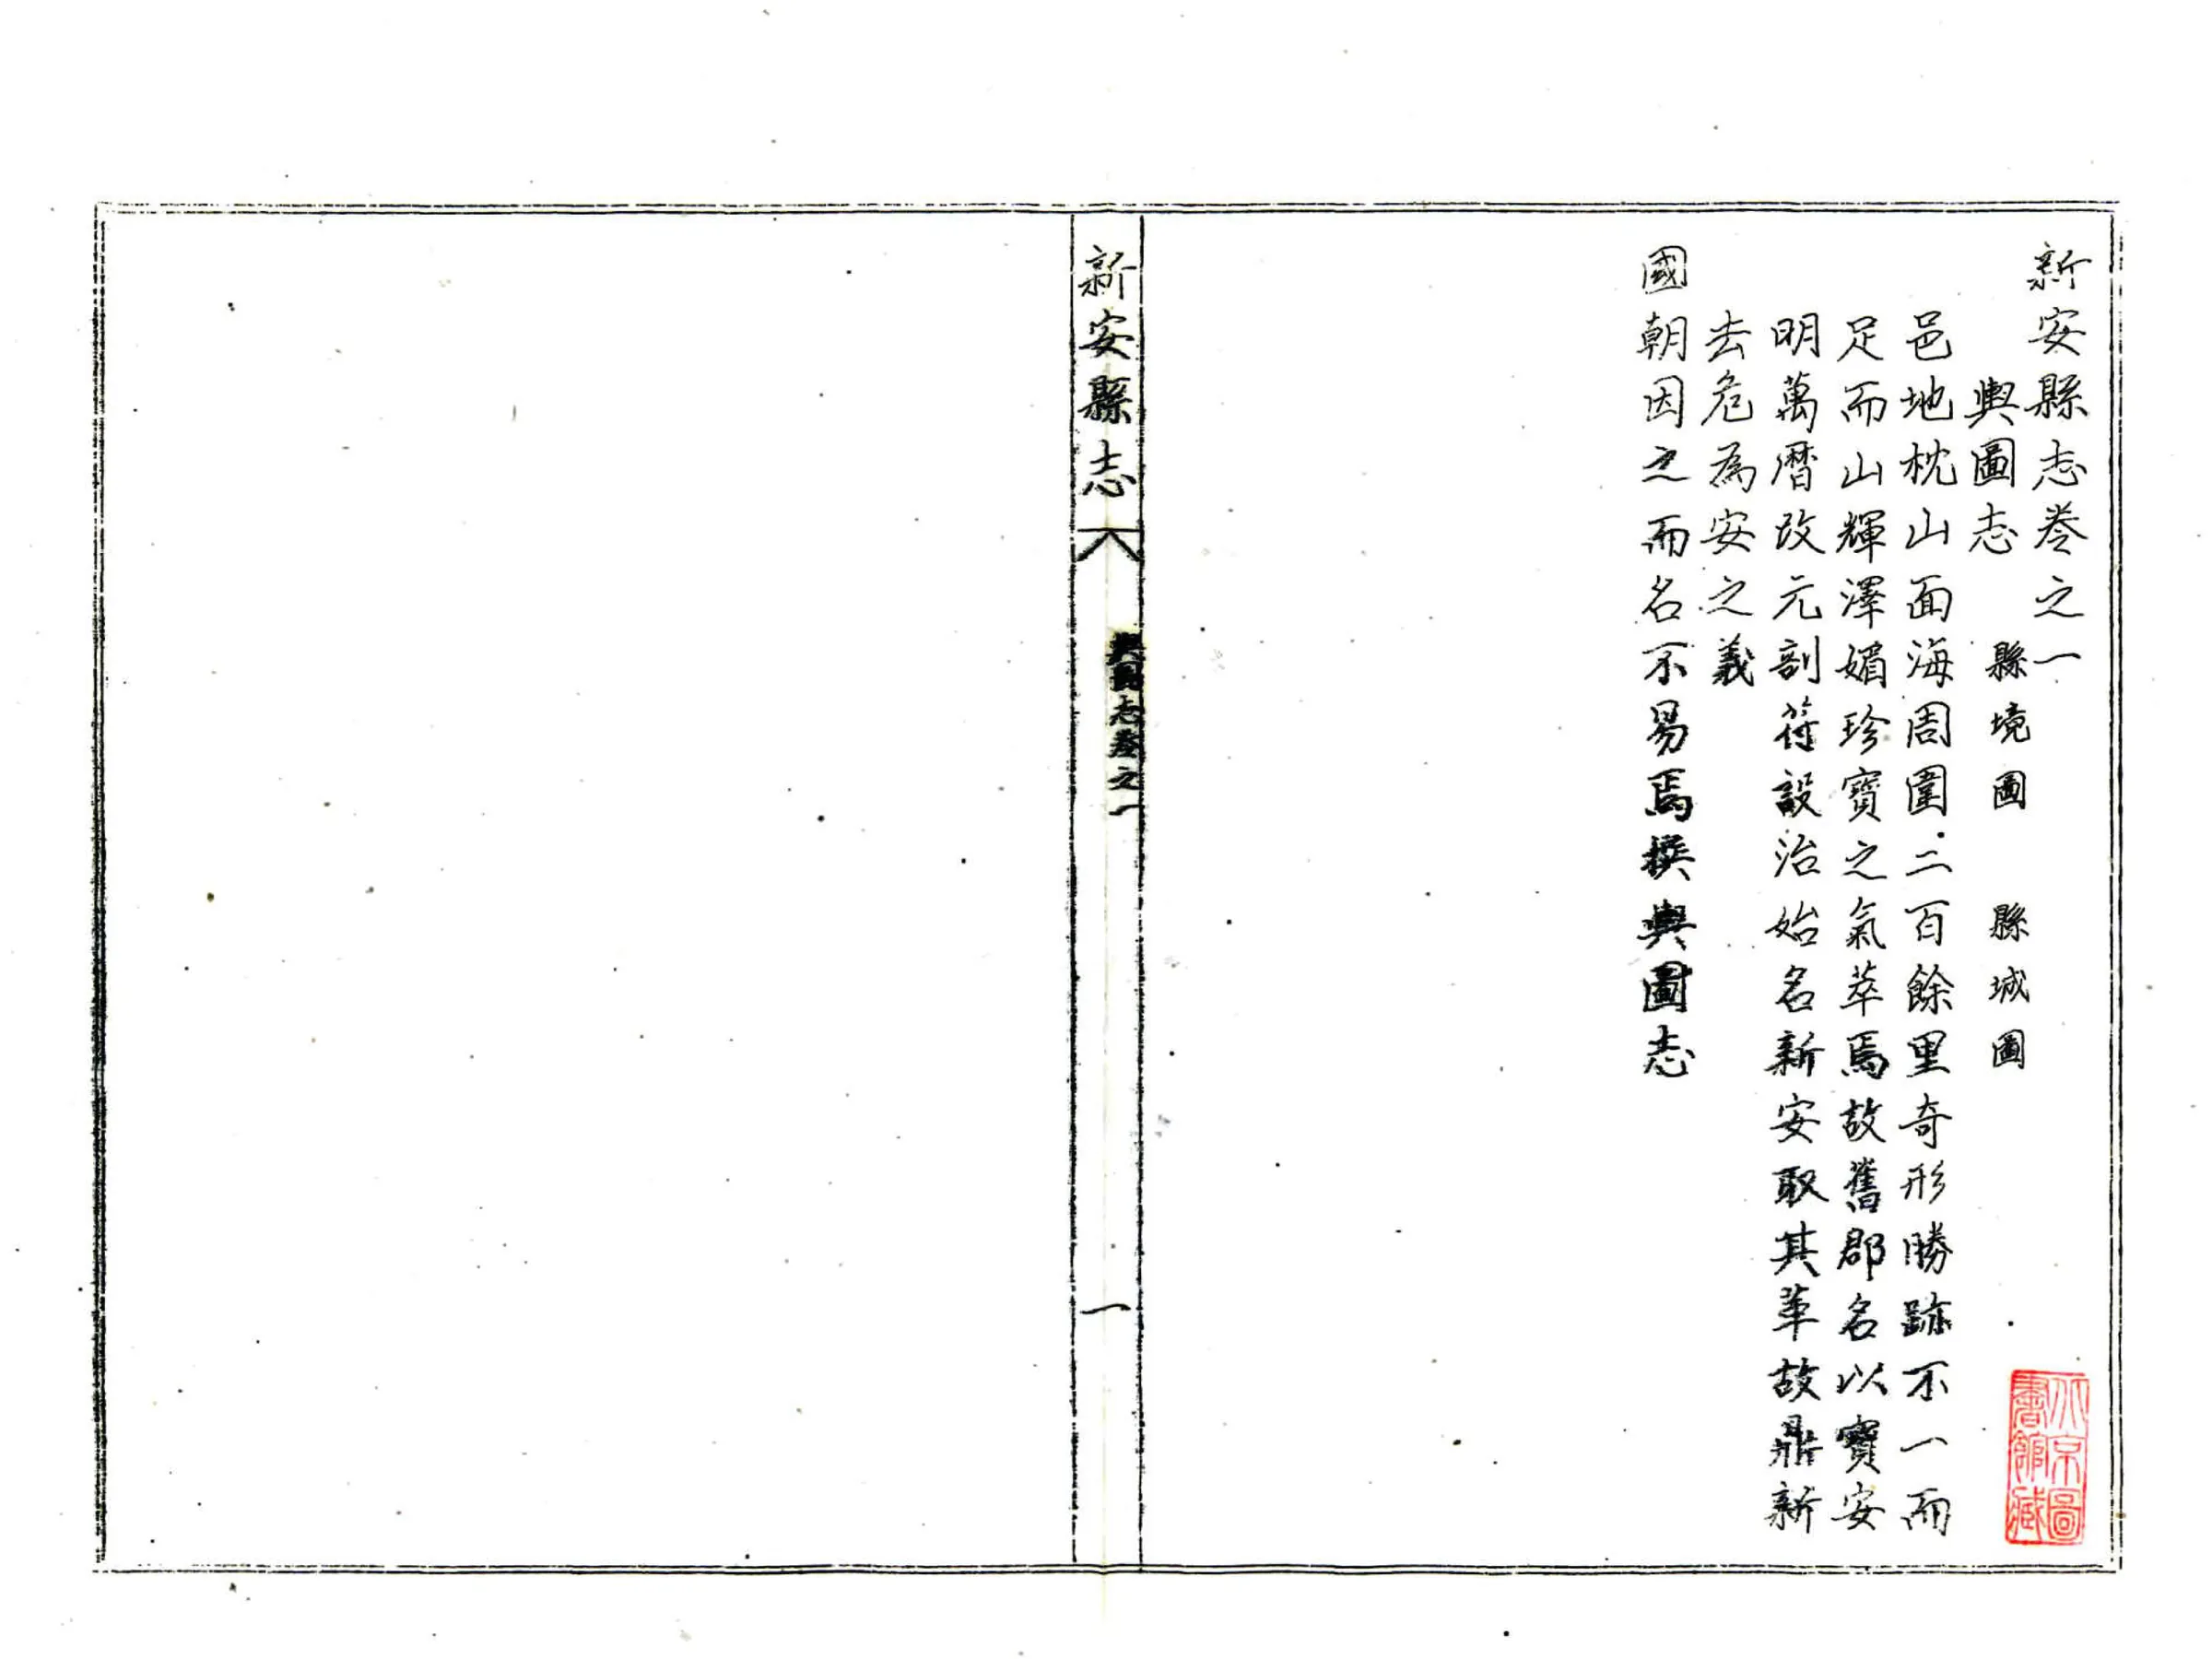 新安縣志卷之一
輿圖志 縣境圖 縣城圖
邑地枕山面海周圍二百餘里奇形勝跡不一而
足而山輝澤媚珍寶之氣萃焉故舊郡名以寶安
明萬曆改元剖符設治始名新安取其革故鼎新
去危為安之義
國朝因之而名不易焉撰輿圖志
北京圖
書館藏
新安縣志
輿圖志卷之一
一